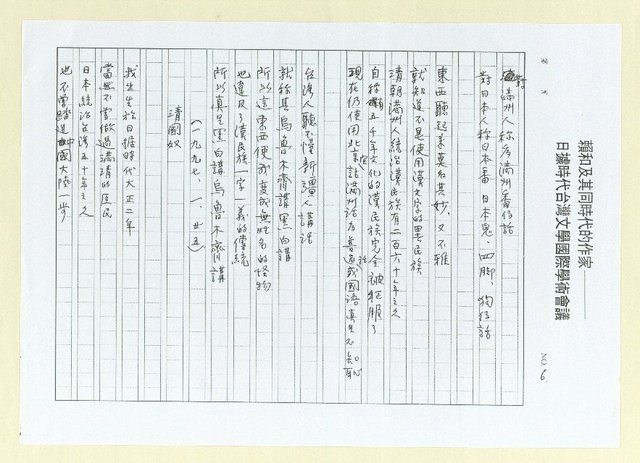 賴和及其同時代的作家——
日據時代台灣文學國際學術會議
NO 6.
滿州人称為滿州番仔話
對日本人称日本番、日本鬼、四脚、狗仔話
東西聽起來莫名其妙、又不雅
就知道不是使用漢文字的異民族
清朝滿州人統治漢民族有二百六十年之久
自称有五千年文化的漢民族完全被征服了
現在仍使用北京話滿州話為普通話或國語真是不知恥
台灣人聽不懂新疆人講話
就称其烏魯木齊講黑白講
所以這東西使我變成無姓名的怪物
也違反了漢民族一字一義的傳統
所以真是黑白講烏魯木齊講
(一九九七、一、廿五)
清國奴
我出生於日據時代大正二年
當然不曾做過滿清的臣民
日本統治台灣五十年之久
也不曾踏進中國大陸一步